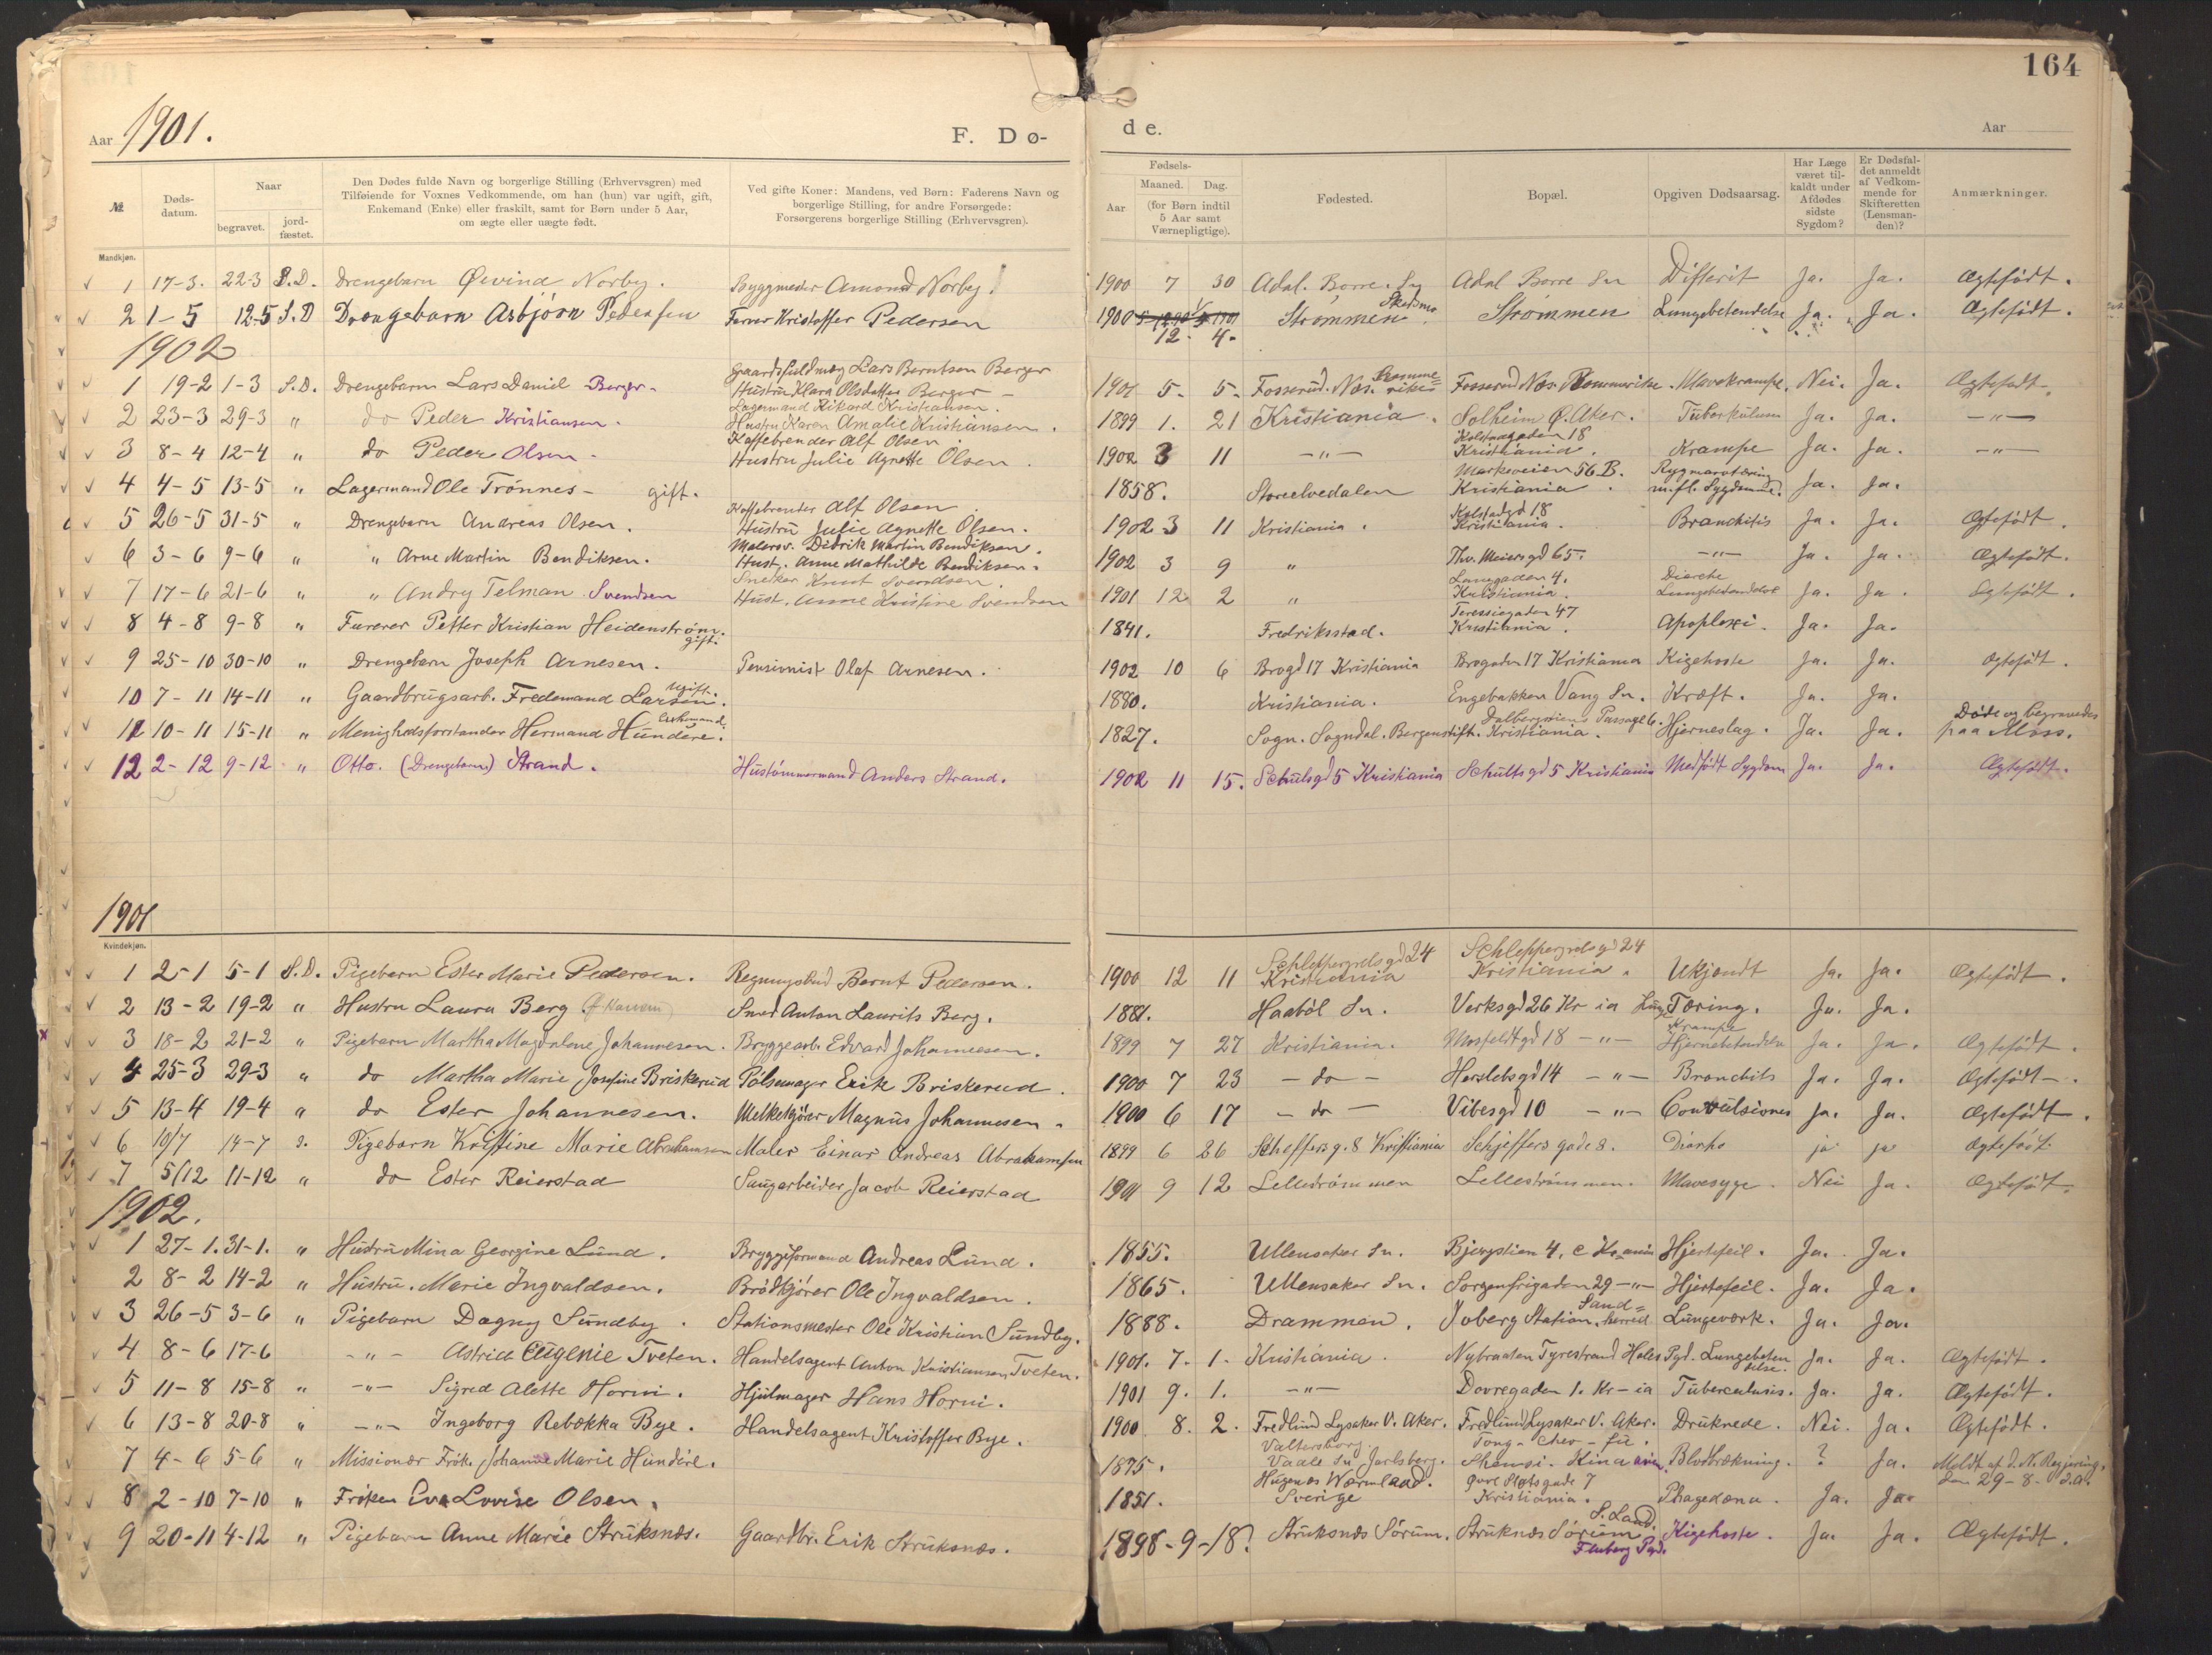 164
Aar 1901. F. Dø- de. Aar
№ Døds-datum. Naar begravet. jord-fæstet. Den Dødes fulde Navn og borgerlige Stilling (Erhvervsgren) med Tilføiende for Voxnes Vedkommende, om han (hun) var ugift, gift, Enkemand (Enke) eller fraskilt, samt for Børn under 5 Aar, om ægte eller uægte født. Ved gifte Koner: Mandens, ved Børn: Faderens Navn og borgerlige Stilling, for andre Forsørgede: Forsørgerens borgerlige Stilling (Erhvervsgren). Aar Fødsels- Maaned. Dag. (for Børn indtil 5 Aar samt Værnepligtige). Fødested. Bopæl. Opgiven Dødsaarsag. Har Læge været til-kaldt under Afdødes sidste Sygdom? Er Dødsfal-det anmeldt af Vedkom-mende for Skifteretten (Lensman-den)? Anmærkninger.
Mandkjøn.
1 17-3. 22-3 S.D. Drengebarn Øivind Norby. Byggmester Amond Norby. 1900 7 30 Adal. Borre. Sn Adal Borre Sn Difterit Ja. Ja. Ægtefödt.
2 1-5 12-5 S.D Drengebarn Asbjörn Pedersen Kristoffer Pedersen 1900 12. 4. Strömmen Skedsmo. Strömmen Lungebetendelse Ja. Ja. Ægtefödt.
1902
1 19-2 1-3 S.D. Drengebarn Lars Daniel Berger. Gaardsfuldmæg Lars Berntsen Berger Hustru Klara Olsdatter Berger 1901 5. 5. Fosserud. Nes. Romerike Fosserud Nes. Romerike. Mavekrampe. Nei. Ja. Ægtefødt.
2 23-3 29-3 " do Peder Kristiansen. Lagermand Rikard Kristiansen. Hustru Karen Amalie Kristiansen. 1899 1. 21 Kristiania. Solheim Ö. Aker. Tuberkulum Ja. Ja. -"-
3 8-4 12-4 " do Peder Olsen. Kaffebrender Alf Olsen. Hustru Julie Agnette Olsen. 1902 3 11 -"- Kolstadgaden 18 Kristiania. Krampe Ja. Ja. -"-
4 4-5 13-5 " Lagermand Ole Trönnes - gift. 1858. Storelvedalen Markeveien 56 B. Kristiania. Rygmarvstæring m.fl. Sygdomme. Ja. Ja.
5 26-5 31-5 " Drengebarn Andreas Olsen. Kaffebrender Alf Olsen Hustru Julie Agnette Olsen. 1902 3 11 Kristiania. Kolstadgd 18 Kristiania. Bronchitis Ja. Ja. Ægtefödt.
6 3-6 9-6 " " Arne Martin Bendiksen. Malersv. Didrik Martin Bendiksen. Hust. Anne Mathilde Bendiksen. 1902 3 9 " Thv. Meiersgd 65. -"- Ja. Ja. Ægtefödt.
7 17-6 21-6 " " Andry Telman Svendsen Sneker Knut Svendsen. Hust. Anne Kristine Svendsen 1901 12 2 " Lanegaden 4. Kristiania. Diareche Lungebetendelse Ja. Ja. Ægtefödt.
8 4-8 9-8 " Furerer Petter Kristian Heidenström. gift. 1841. Fredriksstad. Teressiegaden 47 Kristiania. Apoplexi. Ja. Ja.
9 25-10 30-10 " Drengebarn Joseph Arnesen. Pensionist Olaf Arnesen. 1902 10 6 Brogd 17 Kristiania Brogaden 17 Kristiania Kigehoste Ja. Ja. Ægtefødt.
10 7-11 14-11 " Gaardbrugsarb. Fredemand Larsen. Ugift. 1880. Kristiania. Engebakken Vang Sn. Kræft. Ja. Ja.
11 10-11 15-11 " Menighedsforstander Hermand Hundere. Enkemand. 1827. Sogn. Sogndal. Bergenstift. Dalbergstiens Passage 6. Kristiania. Hjerneslag. Ja. Ja. Döde og begravedes paa Moss.
12 2-12 9-12 " Otto. (Drengebarn) Strand. Hustömmermand Anders Strand. 1902 11 15. Schultsgd 5 Kristiania Schultsgd 5 Kristiania Medfödt Sygdom Ja. Ja. Ægtefödt.
1901
Kvindekjøn.
1 2-1 5-1 S.D. Pigebarn Ester Marie Pedersen. Regningsbud Bernt Pedersen. 1900 12 11 Schleppegrelsgd 24 Kristiania Schleppegrelsgd 24 Kristiania. Ukjendt Ja. Ja. Ægtefödt.
2 13-2 19-2 " Hustru Laura Berg Smed Anton Laurits Berg. 1881. Haaböl Sn. Verksgd 26 Kr-ia Lunge Tæring. Ja. Ja.
3 18-2 21-2 " Pigebarn Martha Magdalene Johannesen. Bryggearb. Edvard Johannesen. 1899 7 27 Kristiania. Mosfeldtgd 18 -"- Krampe Hjernebetendelse Ja. Ja. Ægtefödt.
4 25-3 29-3 " do Martha Marie Josefine Briskerud Pölsemager Erik Briskerud. 1900 7 23 -do- Herslebsgd 14 -"- Bronchits Ja. Ja. Ægtefödt.
5 13-4 19-4 " do Ester Johannesen. Melkekjörer Magnus Johannesen. 1900 6 17 -do- Vibesgd 10 -"- Convulsiones Ja. Ja. Ægtefödt.
6 10/7 14-7 Pigebarn Kristine Marie Abrahamsen Maler Einar Andreas Abrahamsen 1899 6 26 Scheffersg. 8 Kristiania Schjeffers gade 8. Diarhe ja ja Ægtefödt
7 5/12 11-12 " do Ester Reierstad Saugarbeider Jacob Reierstad 1901 9 12 Lellestrømmen Lellestrømmen. Mavesyge. Nei Ja. Ægtefödt.
1902.
1 27-1. 31-1. " Hustru Mina Georgine Lund. Bryggeformand Andreas Lund. 1855. Ullensaker Sn. Bjergstien 4, c Kr.ania Hjertefeil. Ja. Ja.
2 8-2 14-2 " Hustru. Marie Ingvaldsen. Brödkjörer Ole Ingvaldsen. 1865. Ullensaker Sn. Sorgenfrigaden 29 -"- Hjertefeil. Ja. Ja.
3 26-5 3-6 " Pigebarn Dagny Sundby. Stationsmester Ole Kristian Sundby. 1888. Drammen. Joberg Station. Sand=herred Lungeverk. Ja. Ja.
4 8-6 17-6 -"- Astrid Eugenie Tveten. Handelsagent Anton Kristiansen Tveten. 1901. 7. 1. Kristiania. Nybraaten Tyrestrand Holes Pgd. Lungebetendelse. Ja. Ja. Ægtefödt.
5 11-8 15-8 " -"- Sigred Alette Horni. Hjulmager Hans Horni. 1901 9. 1. -"- Dovregaden 1. Kr-ia Tuberculosis. Ja. Ja. Ægtefödt.
6 13-8 20-8 " -"- Ingeborg Rebekka Bye. Handelsagent Kristoffer Bye. 1900 8. 2. Fredlund Lysaker V. Aker. Fredlund Lysaker V. Aker. Druknede. Nei. Ja. Ægtefödt.
7 4-6 5-6 " Missionær Frök. Johanne Marie Hundere. 1875. Valtersborg. Vaale Sn Jarlsberg. Tong-cheo-fu. Shensi. Kina Blodbrækning. ? Ja. Meldt af d. N. Regjering, den 29-8- d.a.
8 2-10 7-10 " Fröken Eva Lovise Olsen. 1851. Hugenæs Wærmland. Sverige Övre Slotsgade 7 Kristiania. Phagedæna. Ja. Ja.
9 20-11 4-12 " Pigebarn Anne Marie Struksnæs. Gaardbr. Erik Struksnæs. 1898-9-18. Struksnæs Sörum. Struknæs Sörum S. Land. Fluberg Pgd. Kigehoste. Ja. Ja. Ægtefödt.